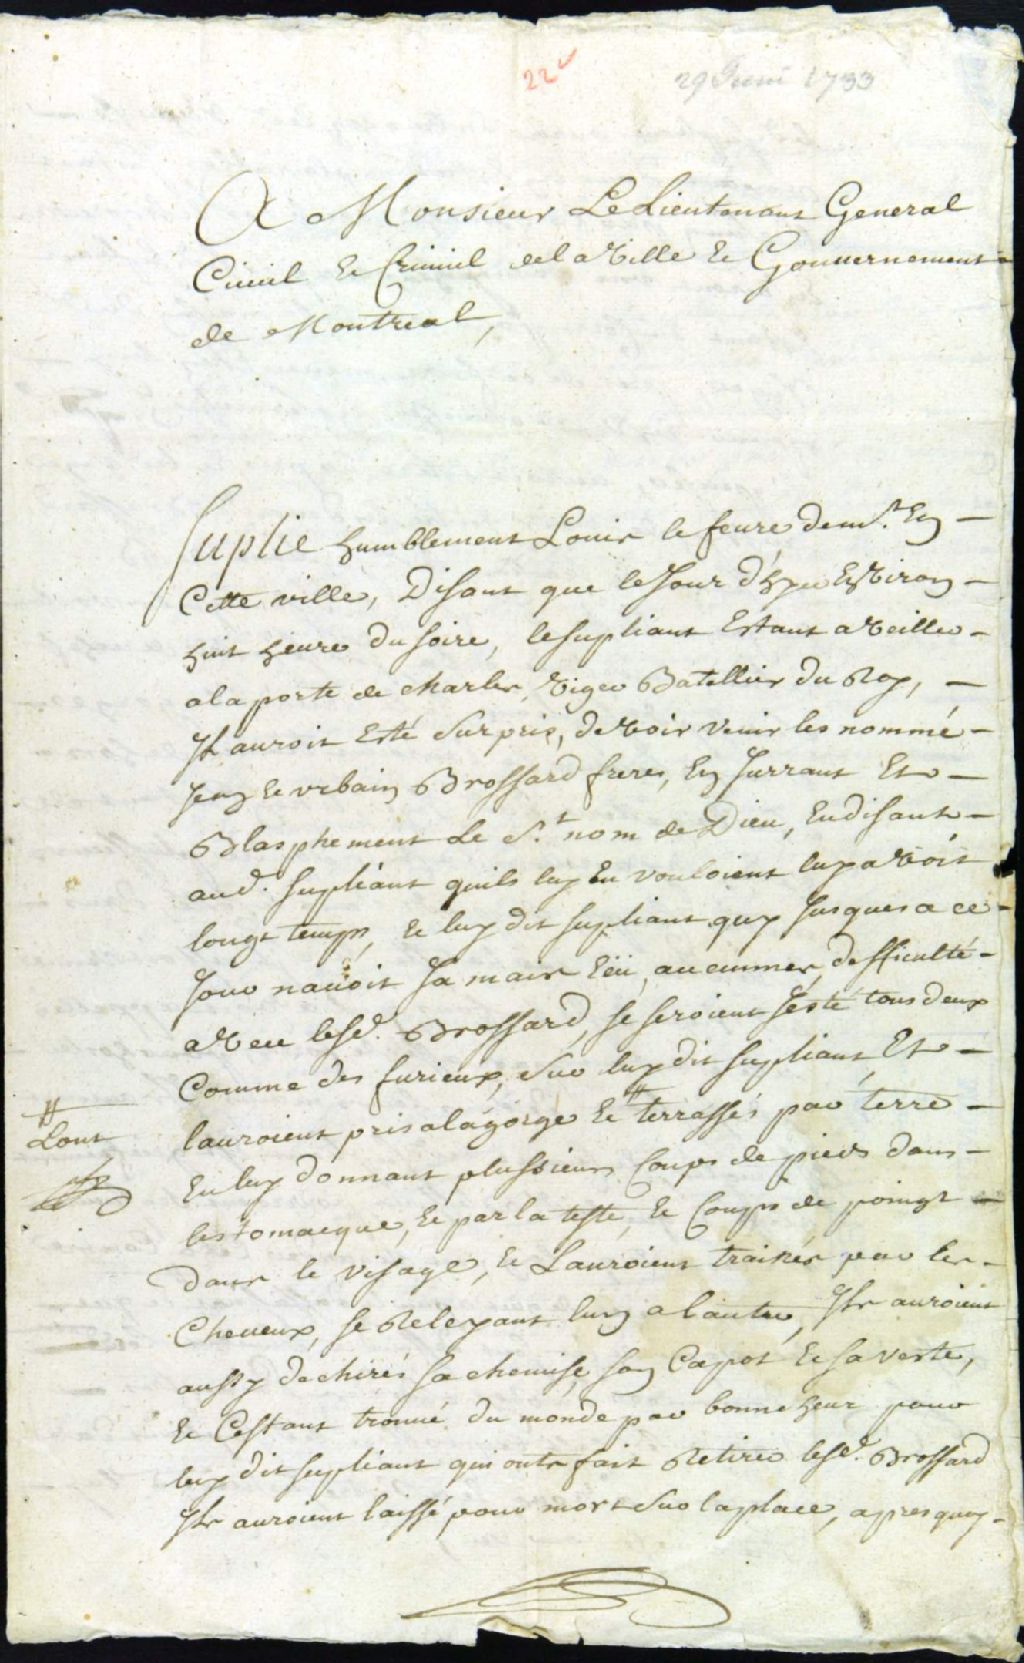 22
29 Juin 1733
A Monsieur Le Lieutenant General
Ciuil Et Criminel de la Ville Et Gouuernement
de Montreal,
Suplie humblement Louis le feure dem.t En
Cette ville, Disant que le Jour d'hyer Environ
huit heure du soire, le supliant Estant a Veiller
a la porte de charles Viger Batellier du Roy,
Il auroit Esté Surpris, de Voir Venir les nommé
Jean Et Vrbain Brossard freres, En Jurrant Et
Blasphement Le S.t nom de Dieu, En disant
aud. supliant quils luy En vouloient luy avoit
longt temps, Et luy dit supliant quy Jusques a ce
Jour nauoit Ja mais Eü aucunnes difficulté
aVec lesd. Brossard, se seroient Jesté tous deux
Comme des furieux, sur luy dit supliant, Et
lauroient pris a la gorge Et # terrassés par terre
# Lont
En luy donnant plussieurs Coups de pieds dans
lestomacque, Et par la teste, Et Coups de poingt
dans le visage, Et Lauroient trainés par les
Cheueux, se Relexant lun a lautre, Ils auroient
aussy dechirés sa chemise, son Capot Et sa veste,
Et Cestant trouué du monde par bonne heur pour
luy dit supliant qui onts fait Retirer lesd. Brossard
Ils auroient laissé pour mort sur la place, apres quoy